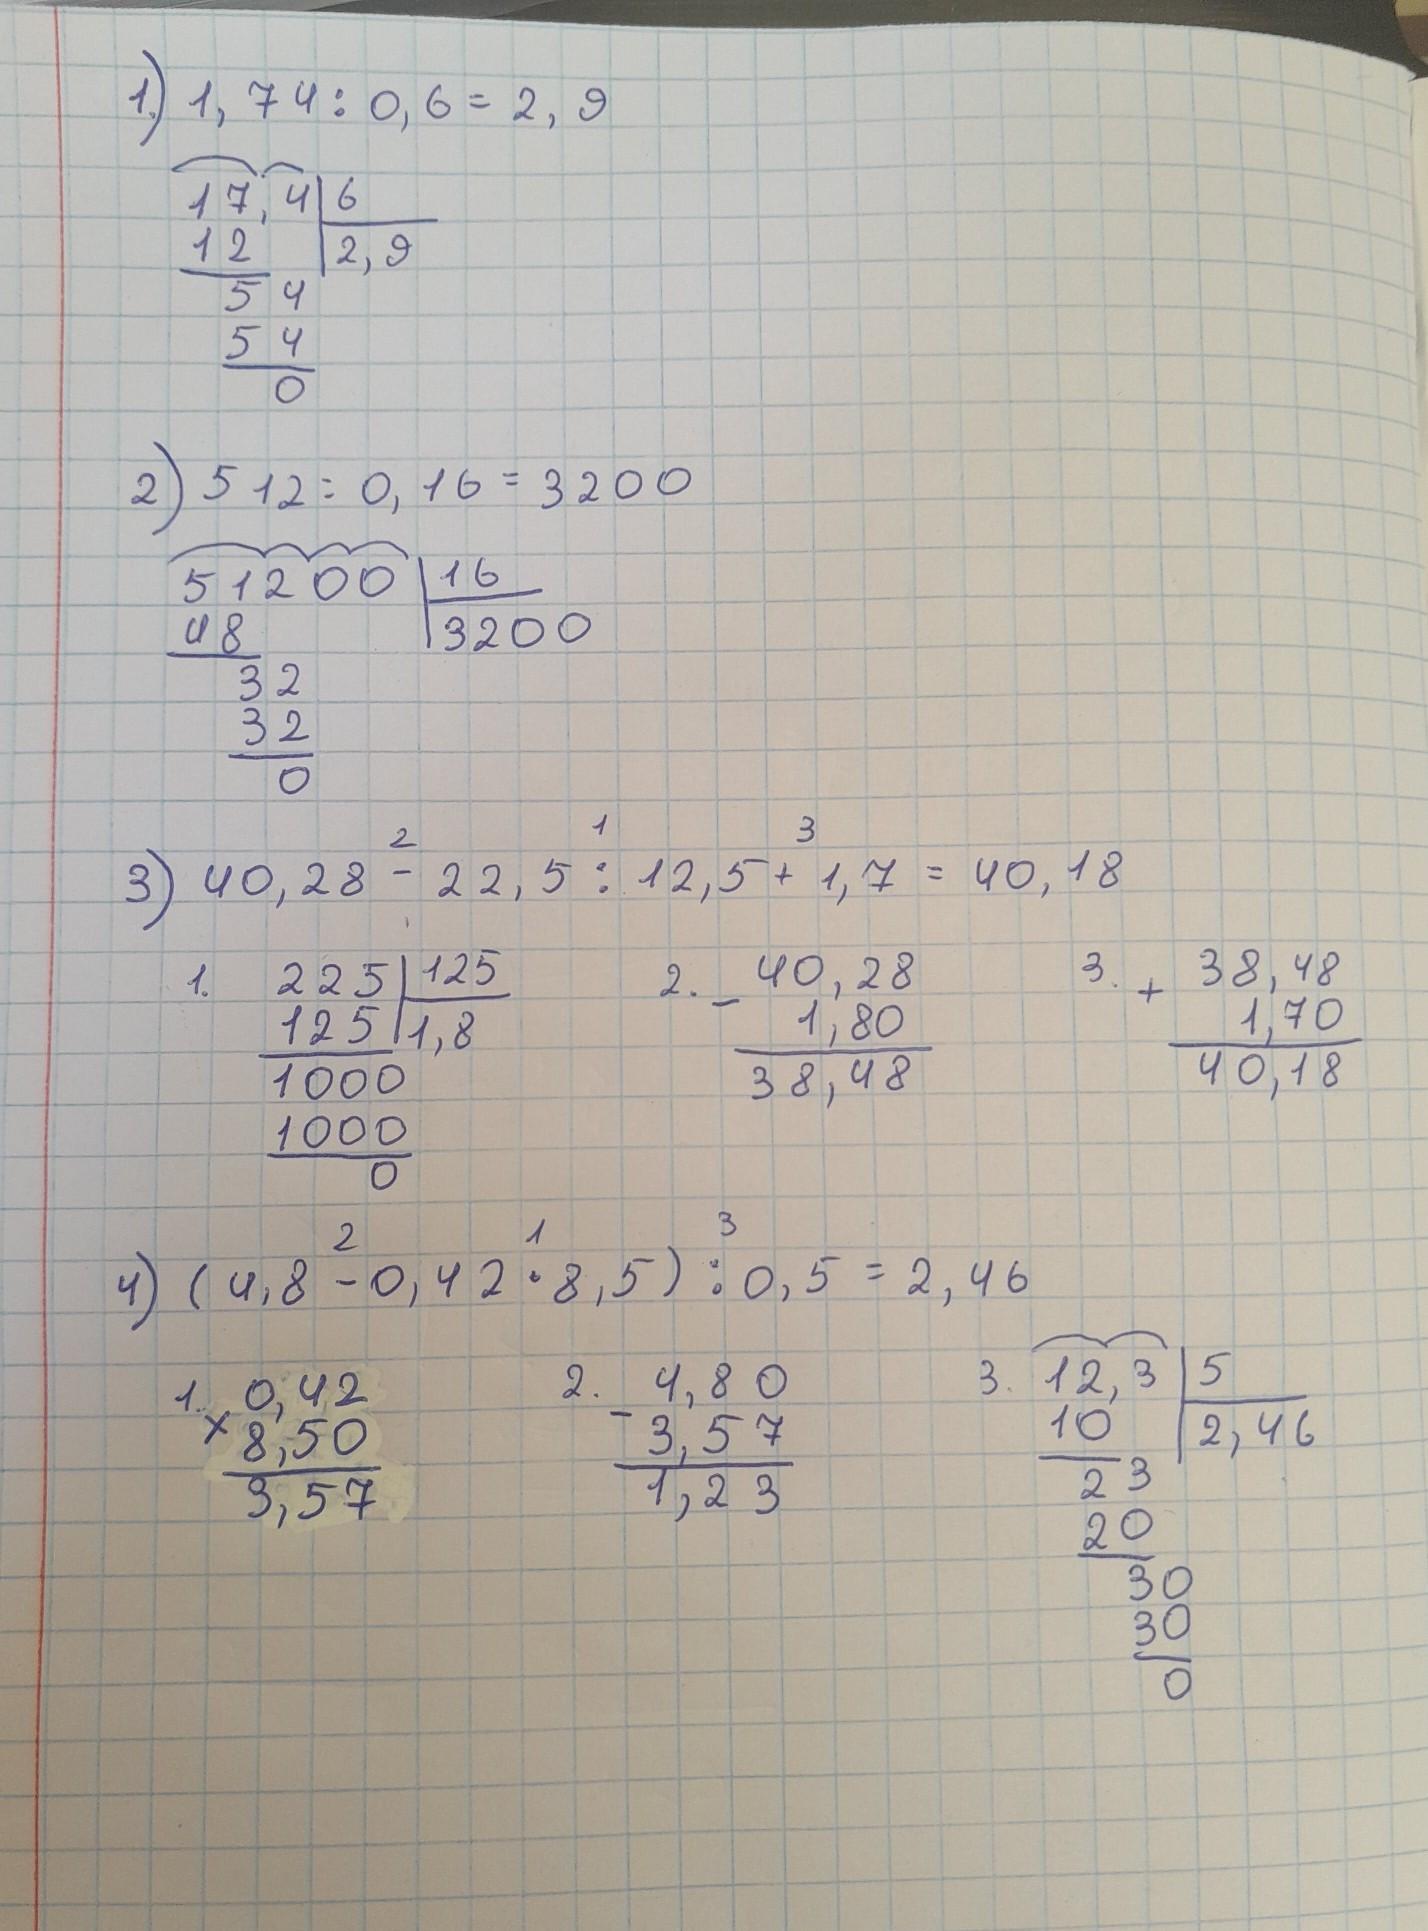 1.) 1,74 : 0,6 = 2,9
17,4 6
12 2,9
54
54
0
2) 512 : 0,16 = 3200
51200 16
48 3200
32
32
0
2 1 3
3) 40,28 - 22,5 : 12,5 + 1,7 = 40,18
1. 225 125 2. - 40,28 3. + 38,48
125 1,8 1,80 1,70
1000 38,48 40,18
1000
0
2 1 3
4) (4,8 - 0,42 · 8,5) : 0,5 = 2,46
1. 0,42 2. 4,80 3. 12,3 5
× 8,50 - 3,57 10 2,46
3,57 1,23 23
20
30
30
0